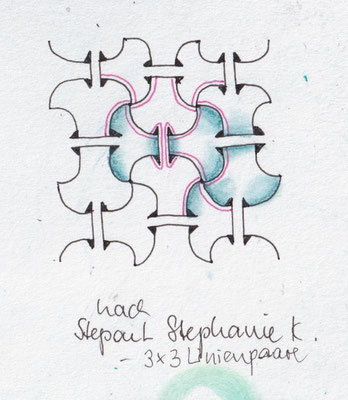 nach
Stepout Stephanie K.
- 3x3 Linienpaare